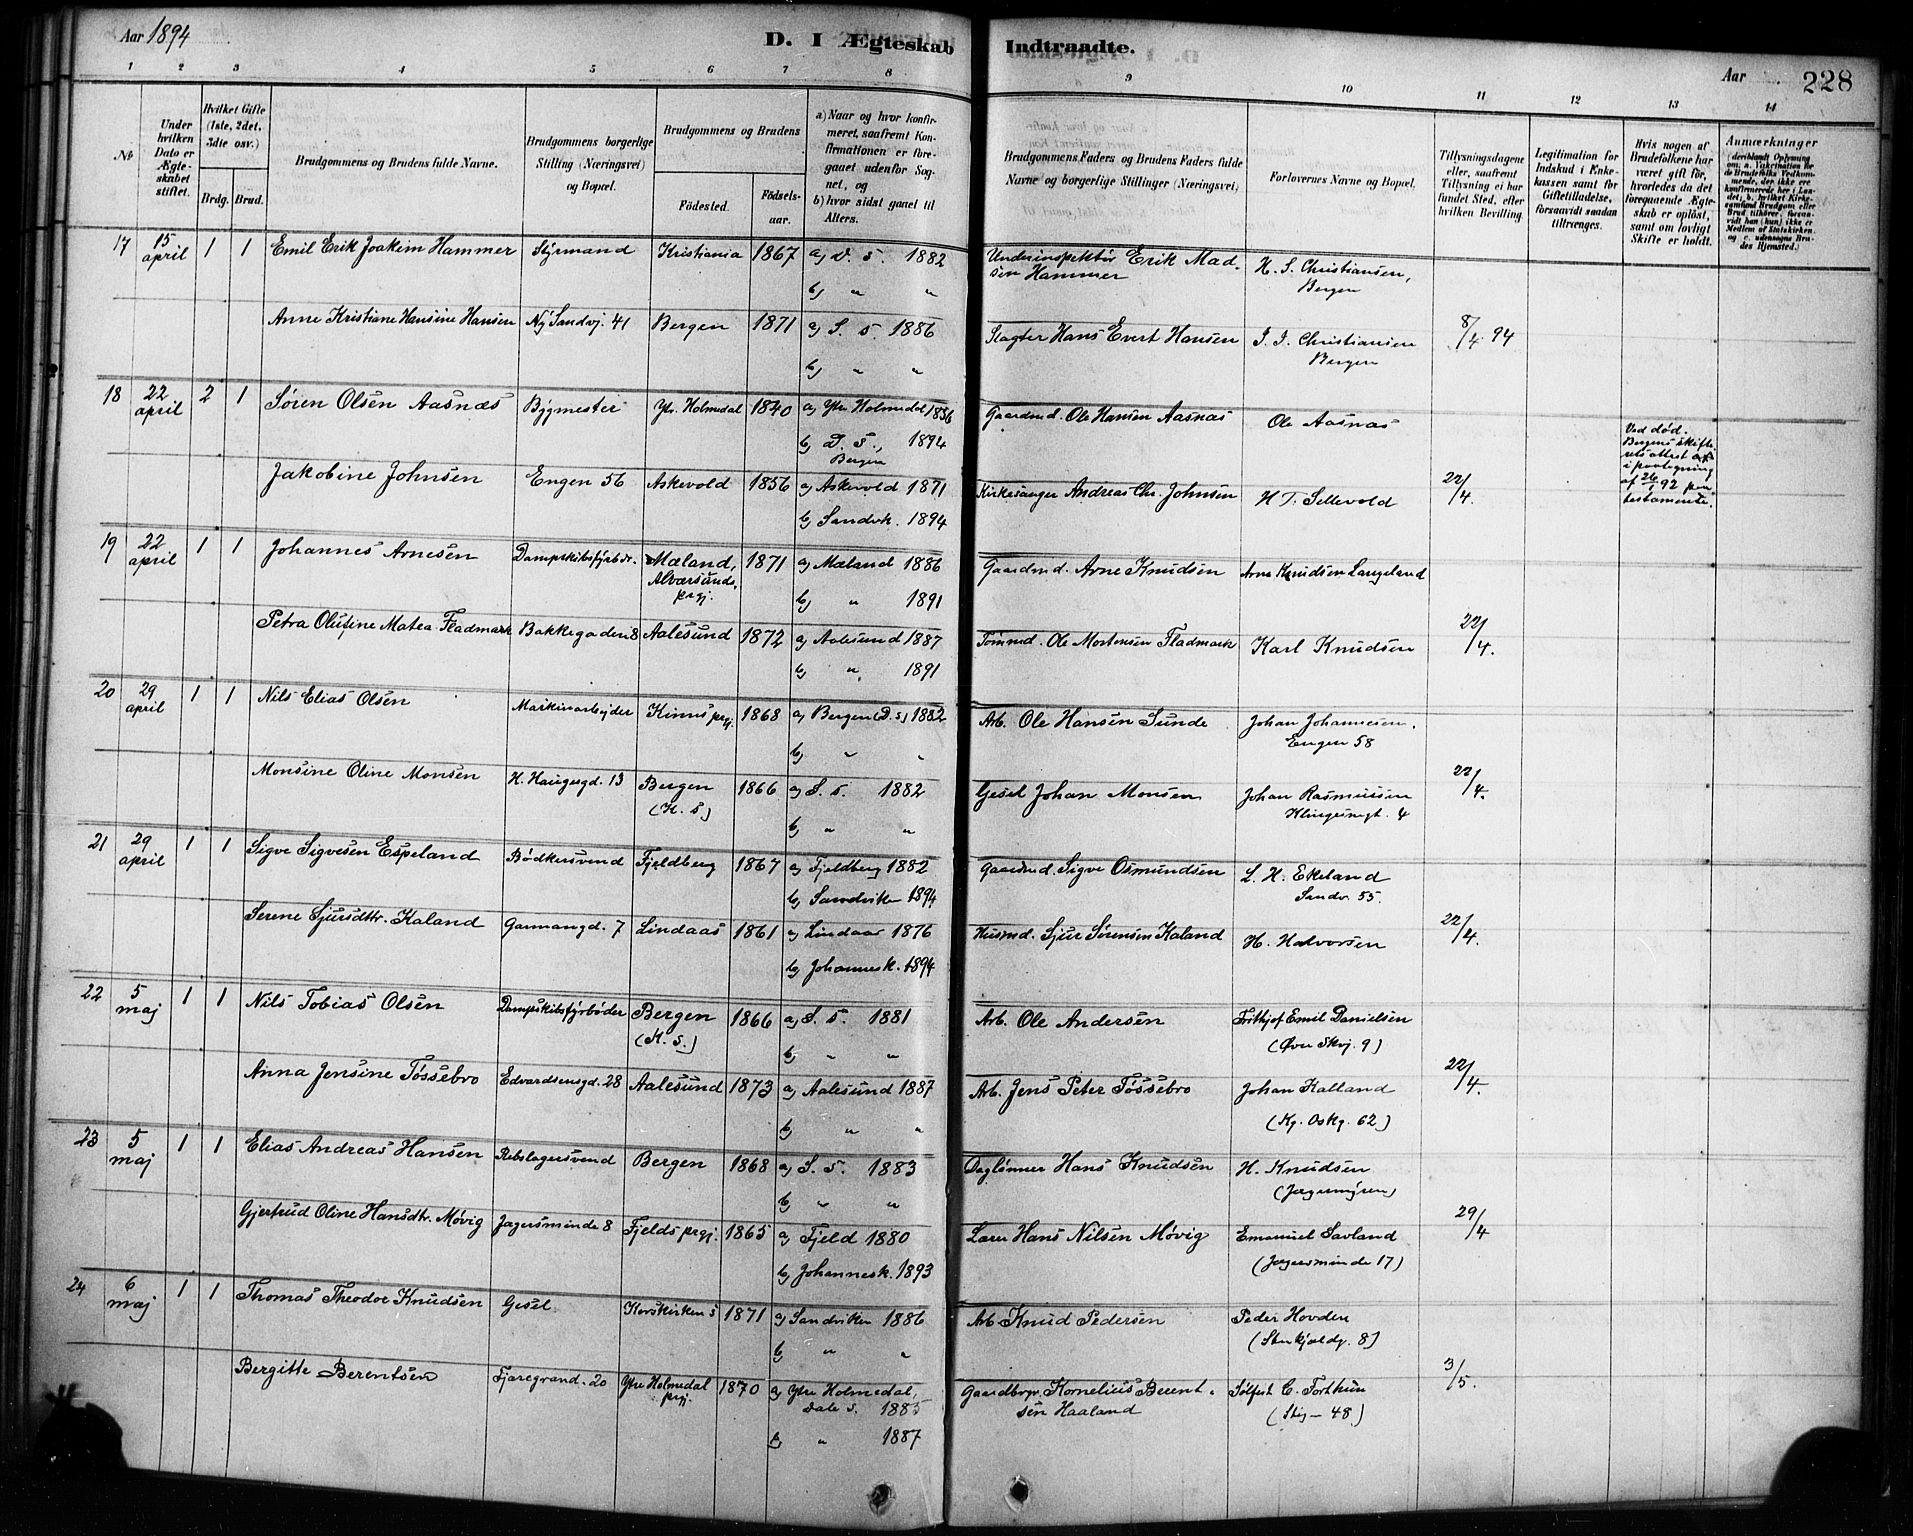 Aar 1894
D. I Ægteskab Indtraadte.
Aar
228
1 2 3 4 5 6 7 8 9 10 11 12 13 14
No
Under hvilken Dato er Ægteskabet stiftet.
Hvilket Gifte (1ste, 2det, 3die osv.)
Brdg. Brud.
Brudgommens og Brudens fulde Navne.
Brudgommens borgerlige Stilling (Næringsvei) og Bopæl.
Brudgommens og Brudens
Fødested. Fødselsaar.
a) Naar og hvor konfirmeret, saafremt Konfirmationen er foregaaet udenfor Sognet, og
b) hvor sidst gaaet til Alters.
Brudgommens Faders og Brudens Faders fulde Navne og borgerlige Stillinger (Næringsvei)
Forlovernes Navne og Bopæl.
Tillysningsdagene eller, saafremt Tillysning ei har fundet Sted, efter hvilken Bevilling.
Legitimation for Indskud i Enkekassen samt for Giftetilladelse, forsaavidt saadan tiltrænges.
Hvis nogen af Brudefolkene har været gift før, hvorledes da det foregaaende Ægteskab er opløst, samt om lovligt Skifte er holdt.
Anmærkninger
17 15 april 1 1 Emil Erik Joakim Hammer Styrmand Kristiania 1867 a) D. S. 1882 Underinspektør Erik Madsen Hammer H. S. Christiansen, Bergen
b) " "
Anne Kristiane Hansine Hansen Ny Sandvj. 41 Bergen 1871 a) S. S. 1886 Slagter Hans Evert Hansen J. J. Christiansen Bergen 8/4 94
b) " "
18 22 april 2 1 Søren Olsen Aasnæs Bygmester Ytr. Holmedal 1840 a) Ytr. Holmedal 1856 Gaardmd. Ole Hansen Aasnæs Ole Aasnæs
b) D. S., Bergen 1894
Ved død. Bergens skifterets attest i paategning af 26/1 92 paa testamente.
Jakobine Johnsen Engen 56 Askevold 1856 a) Askevold 1871 Kirkesanger Andreas Chr. Johnsen H. T. Sellevold 22/4.
b) Sandvk. 1894
19 22 april 1 1 Johannes Arnesen Dampskibsfyrbdr. Mæland, Alversunds prgj. 1871 a) Mæland 1886 Gaardmd. Arne Knudsen Arne Knudsen Langeland
b) " 1891
Petra Olufine Matea Fladmark Bakkegaden 8 Aalesund 1872 a) Aalesund 1887 Tømmd. Ole Mortensen Fladmark Karl Knudsen 22/4.
b) " 1891
20 29 april 1 1 Nils Elias Olsen Maskinarbejder Kinns prgj. 1868 a) Bergen (D. S.) 1882 Arb. Ole Hansen Sunde Johan Johannesen. Engen 58
b) " "
Monsine Oline Monsen H. Haugesgd. 13 Bergen (K. S.) 1866 a) S. S. 1882 Gesel Johan Monsen Johan Rasmussen 22/4.
b) " "
21 29 april 1 1 Sigve Sigvesen Espeland Bødkersvend Fjeldberg 1867 a) Fjeldberg 1882 Gaardmd. Sigve Osmundsen L. H. Ekeland Sandv. 55.
b) Sandviken 1894
Serene Sjursdtr. Kaland Garmangd. 7 Lindaas 1861 a) Lindaas 1876 Husmd. Sjur Sørensen Kaland H. Halvorsen 22/4.
b) Johannesk. 1894
22 5 maj 1 1 Nils Tobias Olsen Dampskibsfyrbøder Bergen (K. S.) 1866 a) S. S. 1881 Arb. Ole Andersen Frithjof Emil Danielsen (Øvre Skvj. 9)
b) " "
Anna Jensine Tøssebro Edvardsensgd. 28 Aalesund 1873 a) Aalesund 1887 Arb. Jens Peter Tøssebro Johan Kalland (Kg. Oskg. 62) 22/4.
b) " "
23 5 maj 1 1 Elias Andreas Hansen Rebslagersvend Bergen 1868 a) S. S. 1883 Daglønner Hans Knudsen H. Knudsen (Jægermyren)
b) " "
Gjertrud Oline Hansdtr. Møvig Jægersminde 8 Fjelds prgj. 1865 a) Fjeld 1880 Lærer Hans Nilsen Møvig Emanuel Savland (Jægersminde 17) 29/4
b) Johannesk. 1893
24 6 maj 1 1 Thomas Theodor Knudsen Gesel Korskirken S 1871 a) Sandviken 1886 Arb. Knud Pedersen Peder Hovden (Stenkjældg. 8)
b) " "
Bergitte Berentsen Fjæregrand. 20 Ytre Holmedal prgj. 1870 a) Ytre Holmedal, Dale S. 1885 Gaardbrgr. Kornelius Berentsen Haaland Sølfest C. Torthun (Stig – 48) 3/5.
b) " 1887